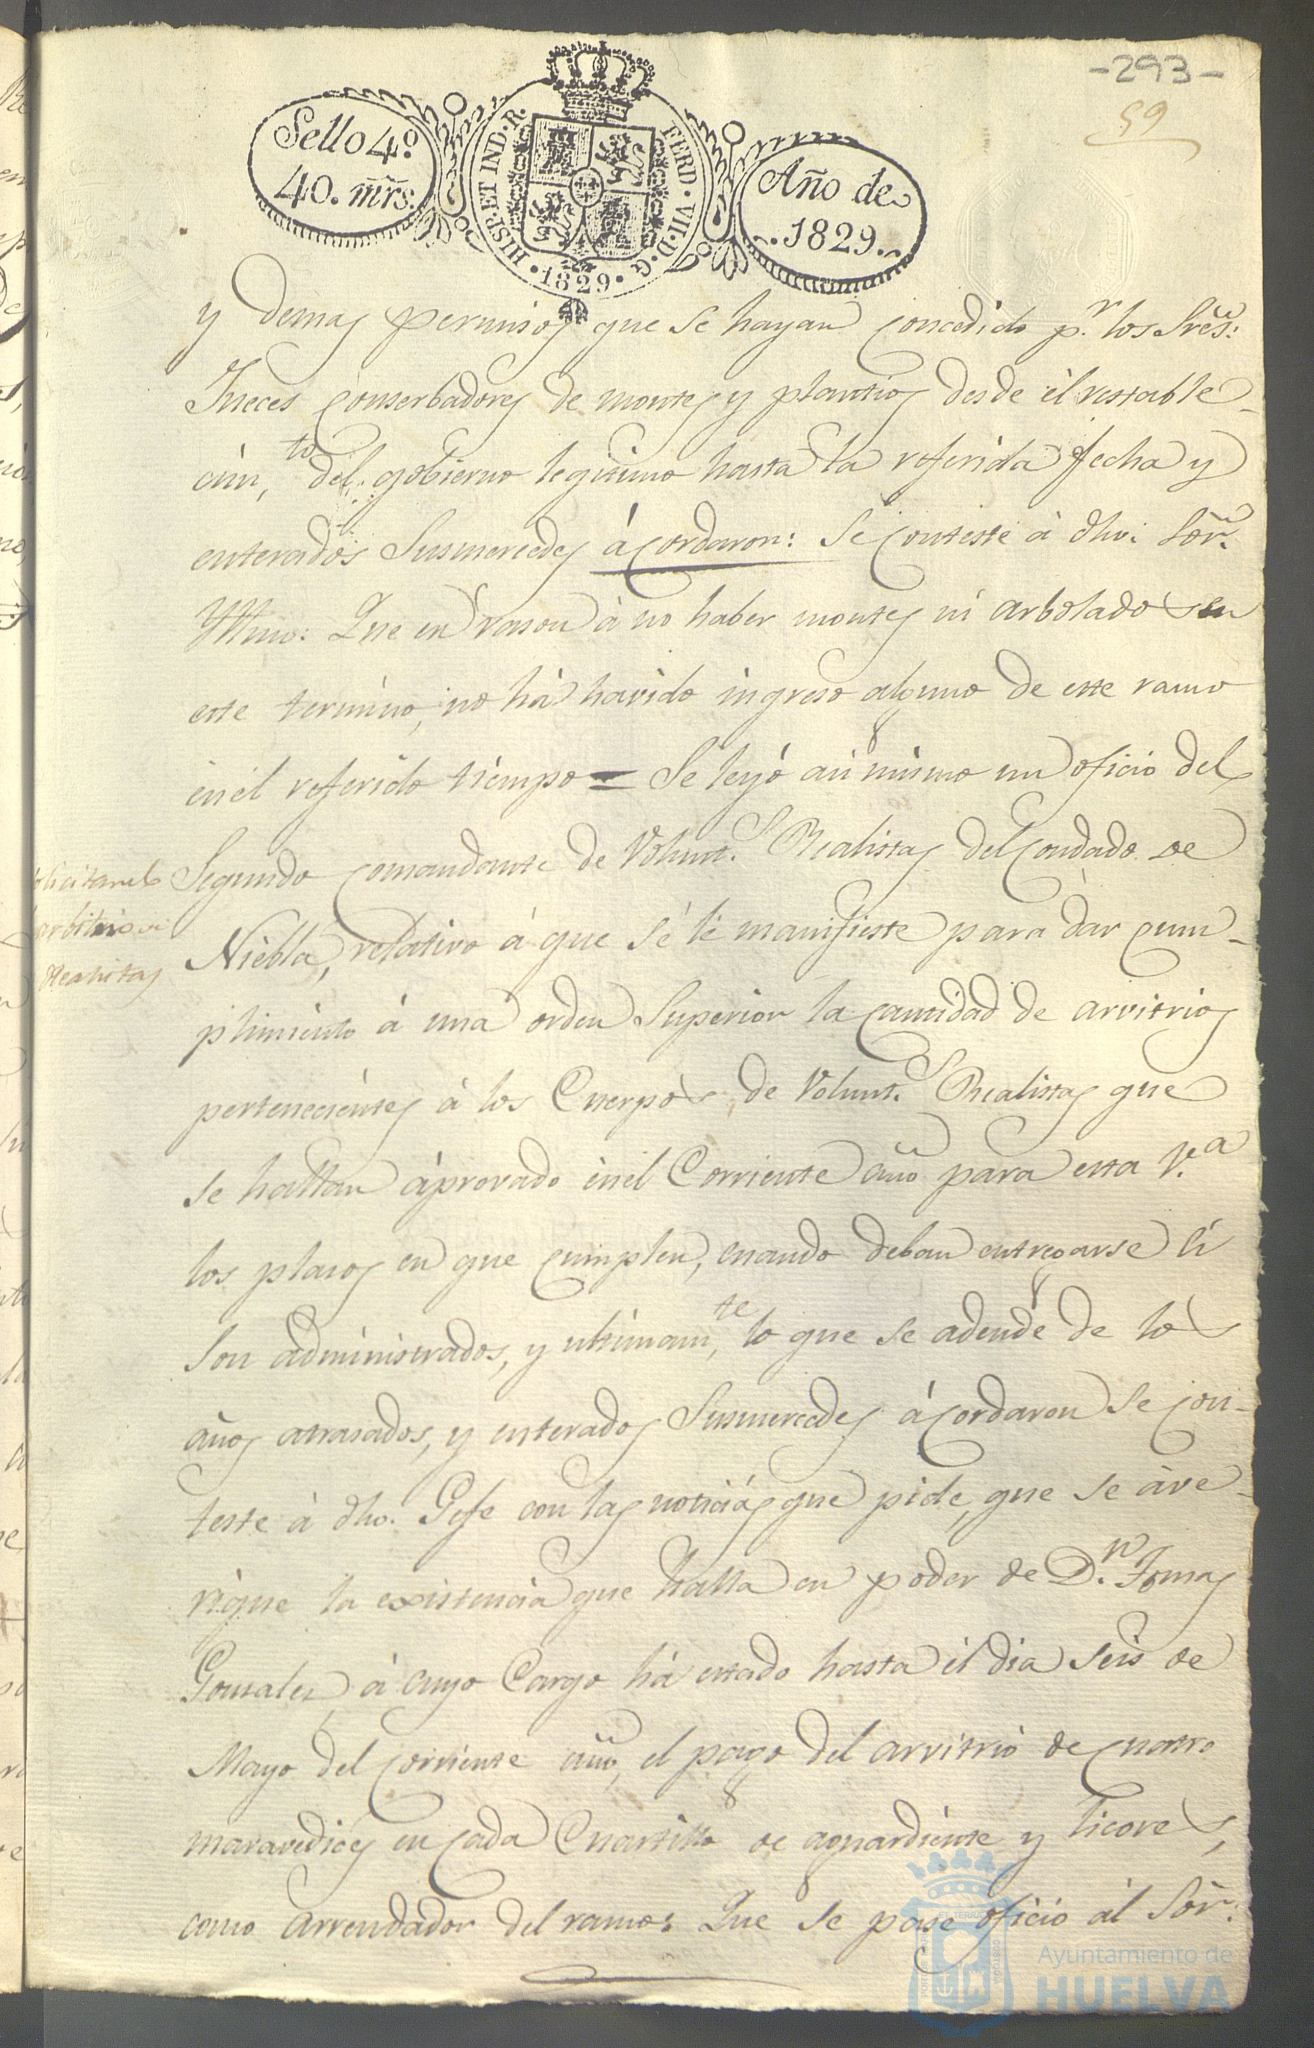 -293-
59
Sello 4º
40. mrs.
HISP. ET IND. R.
FERD. VII. D. G.
1829
Año de
1829.
y demas permisos que se hayan concedido p.r los Sres:
Jueces conserbadores de montes y plantios desde él restable-
cim,to del gobierno legitimo hasta la referida fecha y
enterados Susmercedes ácordaron: se conteste á dho: Sor.
Yttmo: Que en rason á no haber montes ni arbolados en
este termino, no há havido ingreso alguno de este ramo
en el referido tiempo = Se leyó asi mismo un oficio del
Segundo comandante de Volunt.s Realistas del condado de
Niebla, relativo á que sé le manifieste para dár cum-
plimiento á una orden Superior la cantidad de arvitrios
pertenecientes á los Cuerpos, de Volunt.s Realistas que
se hallan áprovado en el Corriente año para esta V.a
los plasos en que cumplen, cuando deban entregarse si
son administrados, y ultimam,te lo que se adeude de los
años atrasados, y enterados Susmercedes ácordaron se con-
teste á dho. Gefe con las noticias que pide, que se áve-
rigue la existencia que halla en poder de D.n Tomas
Gonsales á cuyo Cargo há estado hasta él dia seis de
Mayo del corriente año, el pago del arvitrio de cuatro
maravedices en cada Cuartillo de aguardiente y licores,
como arrendador del ramo: Que se pase oficio ál Sor.
arbitrios
Realistas
Ayuntamiento de
HUELVA